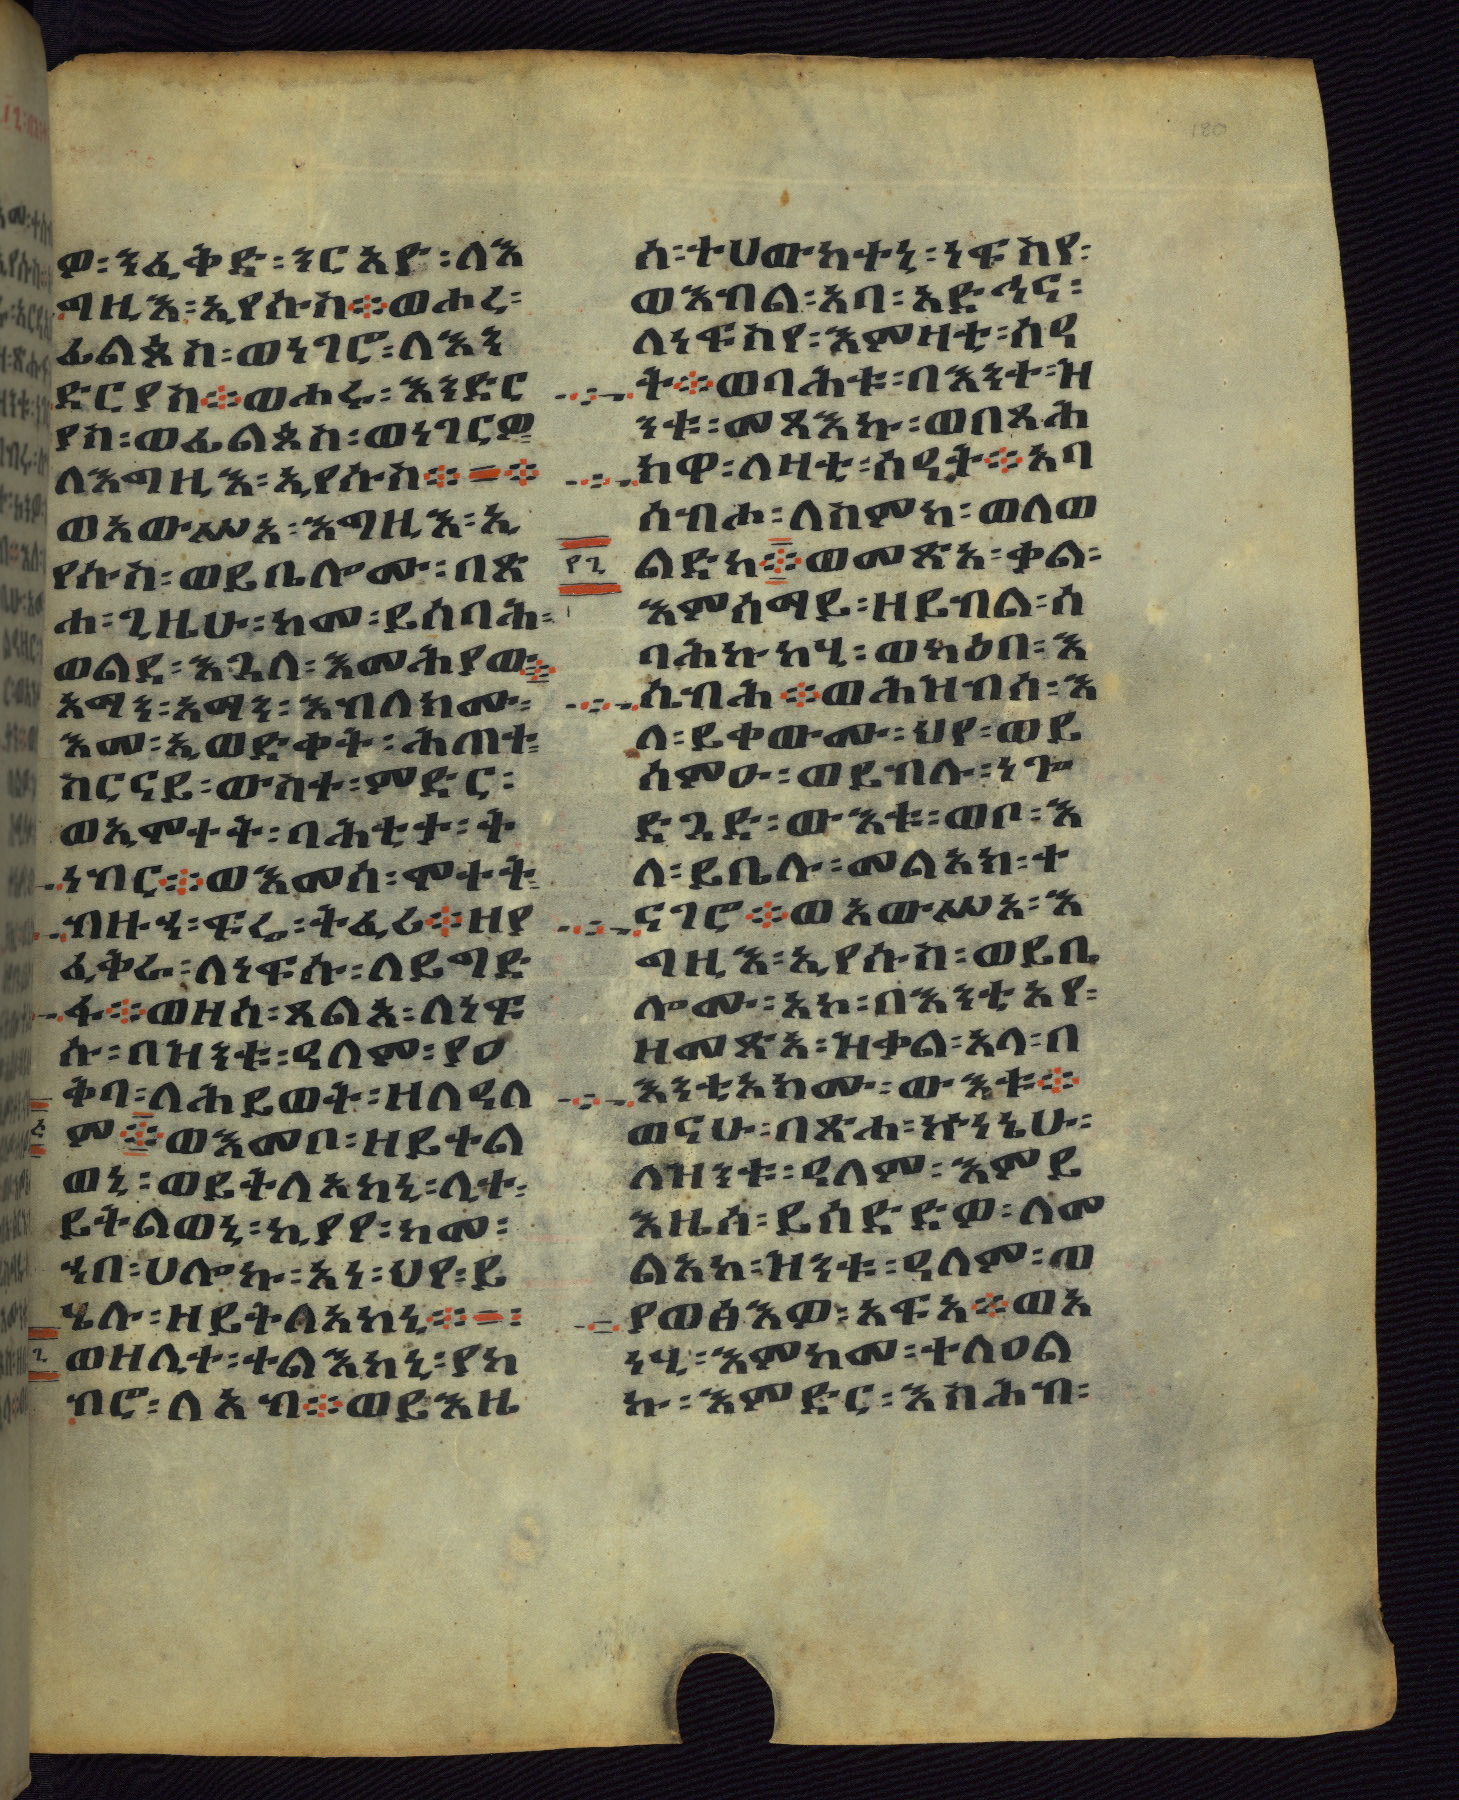 ዎ፡ ንፈቅድ፡ ንርአዮ፡ ለእ
ግዚእ፡ ኢየሱስ ፨ ወሖረ፡
ፊልጶስ፡ ወነገሮ፡ ለእን
ድርያስ ፨ ወሖሩ፡ እንድር
ያስ፡ ወፊልጶስ፡ ወነገርዎ፡
ለእግዚእ፡ ኢየሱስ ፨ = ፨
ወአውሥአ፡ እግዚእ፡ ኢ
የሱስ፡ ወይቤሎሙ፡ በጽ
ሐ፡ ጊዜሁ፡ ከመ፡ ይሰባሕ፡
ወልደ፡ እጓለ፡ እመሕያው ፨
አማን፡ አማን፡ እብለክሙ፡
እመ፡ ኢወድቀት፡ ሕጠተ፡
ስርናይ፡ ውስተ፡ ምድር፡
ወኢሞተት፡ ባሕቲታ፡ ት
ነብር ፨ ወእመሰ፡ ሞተት፡
ብዙኀ፡ ፍሬ፡ ትፈሪ ፨ ዘያ
ፈቅራ፡ ለነፍሱ፡ ለይግድ
ፋ ፨ ወዘሰ፡ ጸልአ፡ ለነፍ
ሱ፡ በዝንቱ፡ ዓለም፡ የዐ
ቅባ፡ ለሕይወት፡ ዘለዓለ
ም ፨ ወእመቦ፡ ዘይተል
ወኒ፡ ወይትለአከኒ፡ ሊተ፡
ይትልወኒ፡ ኪያየ፡ ከመ፡
ኀበ፡ ሀሎኩ፡ አነ፡ ህየ፡ ይ
ሄሉ፡ ዘይትለአከኒ ፨ = ፡
ወዘሊተ፡ ተልእከኒ፡ ያከ
ብሮ፡ ለአብ ፨ ወይእዜ
ሰ፡ ተሀውከተኒ፡ ነፍስየ፡
ወእብል፡ አባ፡ አድኅና፡
ለነፍስየ፡ እምዛቲ፡ ሰዓ
ት ፨ ወባሕቱ፡ በእንተ፡ ዝ
ንቱ፡ መጻእኩ፡ ወበጻሕ
ክዋ፡ ለዛቲ፡ ሰዓት ፨ አባ
ሰብሖ፡ ለስምከ፡ ወለወ
ልድከ ፨ ወመጽአ፡ ቃል፡
፲፪
እምሰማይ፡ ዘይብል፡ ሰ
ባሕኩከሂ፡ ወካዕበ፡ እ
ሴብሕ ፨ ወሕዝብሰ፡ እ
ለ፡ ይቀውሙ፡ ህየ፡ ወይ
ሰምዑ፡ ወይብሉ፡ ነጐ
ድጓድ፡ ውእቱ፡ ወቦ፡ እ
ለ፡ ይቤሉ፡ መልአክ፡ ተ
ናገሮ ፨ ወአውሥአ፡ እ
ግዚእ፡ ኢየሱስ፡ ወይቤ
ሎሙ፡ አኮ፡ በእንቲአየ፡
ዘመጽአ፡ ዝቃል፡ አላ፡ በ
እንቲአክሙ፡ ውእቱ ፨
ወናሁ፡ በጽሐ፡ ኵነኔሁ፡
ለዝንቱ፡ ዓለም፡ እምይ
እዜሰ፡ ይሰድድዎ፡ ለመ
ልአከ፡ ዝንቱ፡ ዓለም፡ ወ
ያወፅእዎ፡ አፍአ ፨ ወአ
ነሂ፡ እምከመ፡ ተለዐል
ኩ፡ እምድር፡ እስሕብ፡